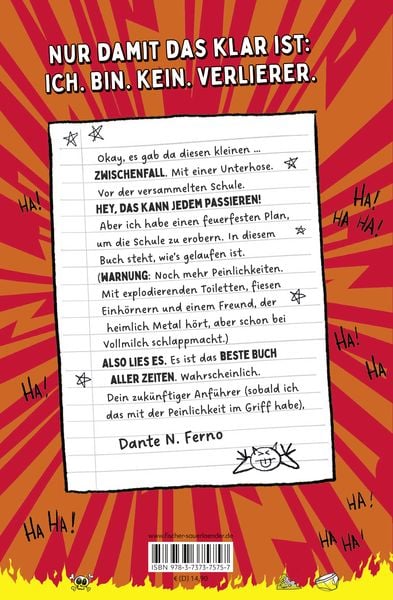 NUR DAMIT DAS KLAR IST:
ICH. BIN. KEIN. VERLIERER.
Okay, es gab da diesen kleinen ...
ZWISCHENFALL. Mit einer Unterhose.
Vor der versammelten Schule.
HEY, DAS KANN JEDEM PASSIEREN!
Aber ich habe einen feuerfesten Plan,
um die Schule zu erobern. In diesem
Buch steht, wie's gelaufen ist.
(WARNUNG: Noch mehr Peinlichkeiten.
Mit explodierenden Toiletten, fiesen
Einhörnern und einem Freund, der
heimlich Metal hört, aber schon bei
Vollmilch schlappmacht.)
ALSO LIES ES. Es ist das BESTE BUCH
ALLER ZEITEN. Wahrscheinlich.
Dein zukünftiger Anführer (sobald ich
das mit der Peinlichkeit im Griff habe),
Dante N. Ferno
HA!
HA!
HA HA!
HA!
HA!
HA!
HA!
HA HA!
HA HA!
www.fischer-sauerlaender.de
ISBN 978-3-7373-7575-7
€ (D) 14,90